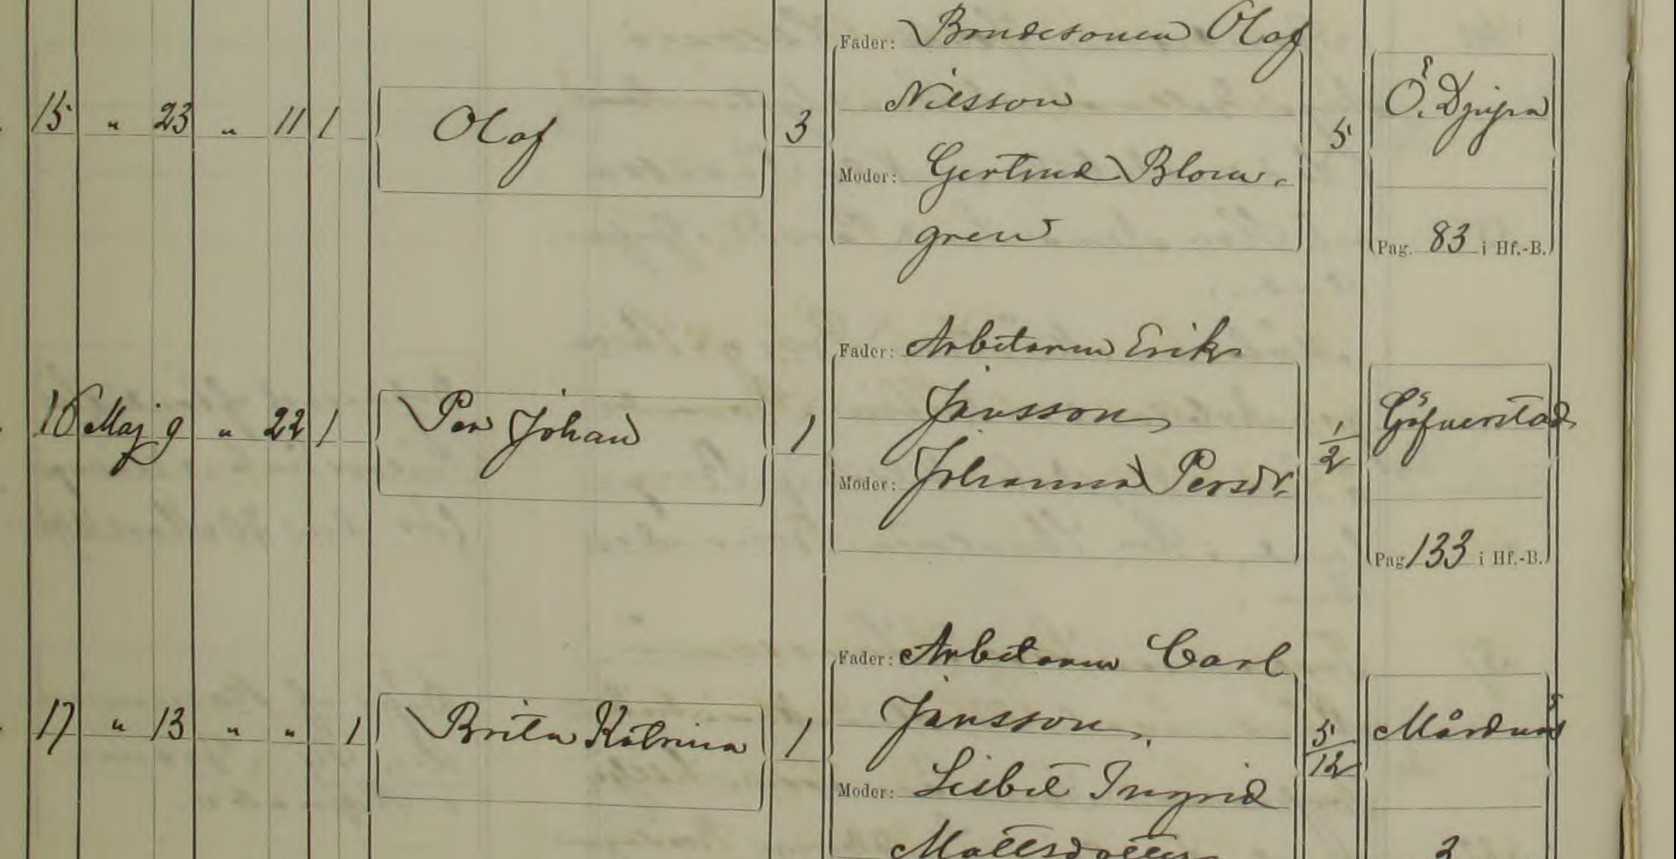 Fader: Bondesonen Olof
15 " 23 " 11 1 Olof 3 Nilsson 5 Ö. Djupra
Moder: Gertrud Blom-
gren
Pag. 83 i Hf.-B.
Fader: Arbetaren Erik
16 Maj 9 " 22 1 Per Johan 1 Jansson 1/2
Moder: Johanna Persdr.
Pag. 133 i Hf.-B.
Fader: Arbetaren Carl
17 " 13 " " 1 Brita Katrina 1 Jansson 5/12 Mårdnäs
Moder: Lisbet Ingrid
Mattsdotter